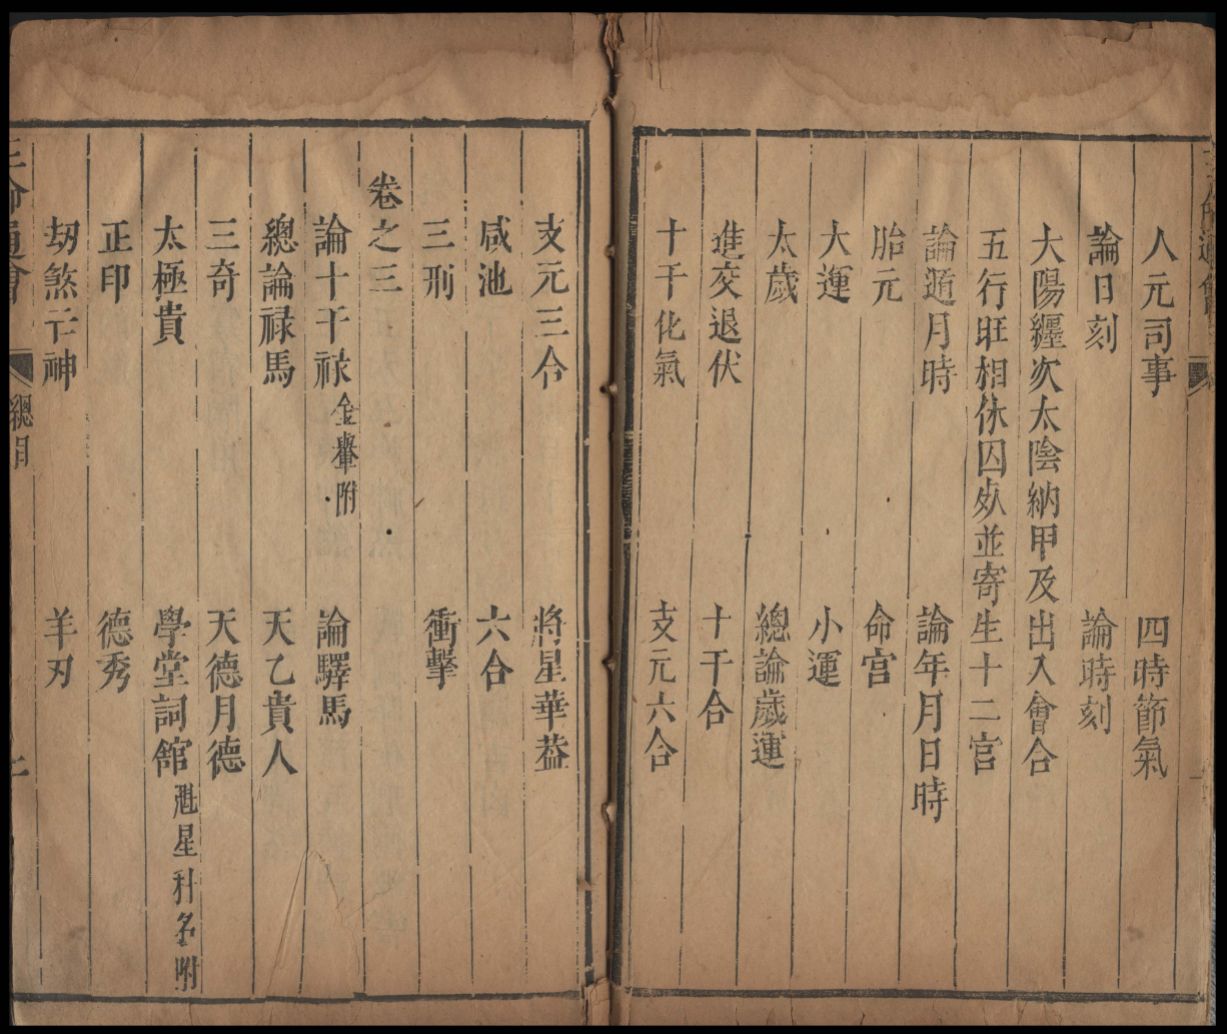 人元司事　四時節氣
論日刻　論時刻
大陽纏次太陰納甲及出入會合
五行旺相休囚死並寄生十二宫
論遁月時　論年月日時
胎元　命宫
大運　小運
太歲　總論歲運
進交退伏　十干合
十干化氣　支元六合
支元三合　將星華葢
咸池　六合
三刑　衝擊
卷之三
論十干祿金轝附　論驛馬
總論禄馬　天乙貴人
三奇　天德月德
太極貴　學堂詞館魁星科名附
正印　德秀
刼煞亡神　羊刃
三命通會　總目